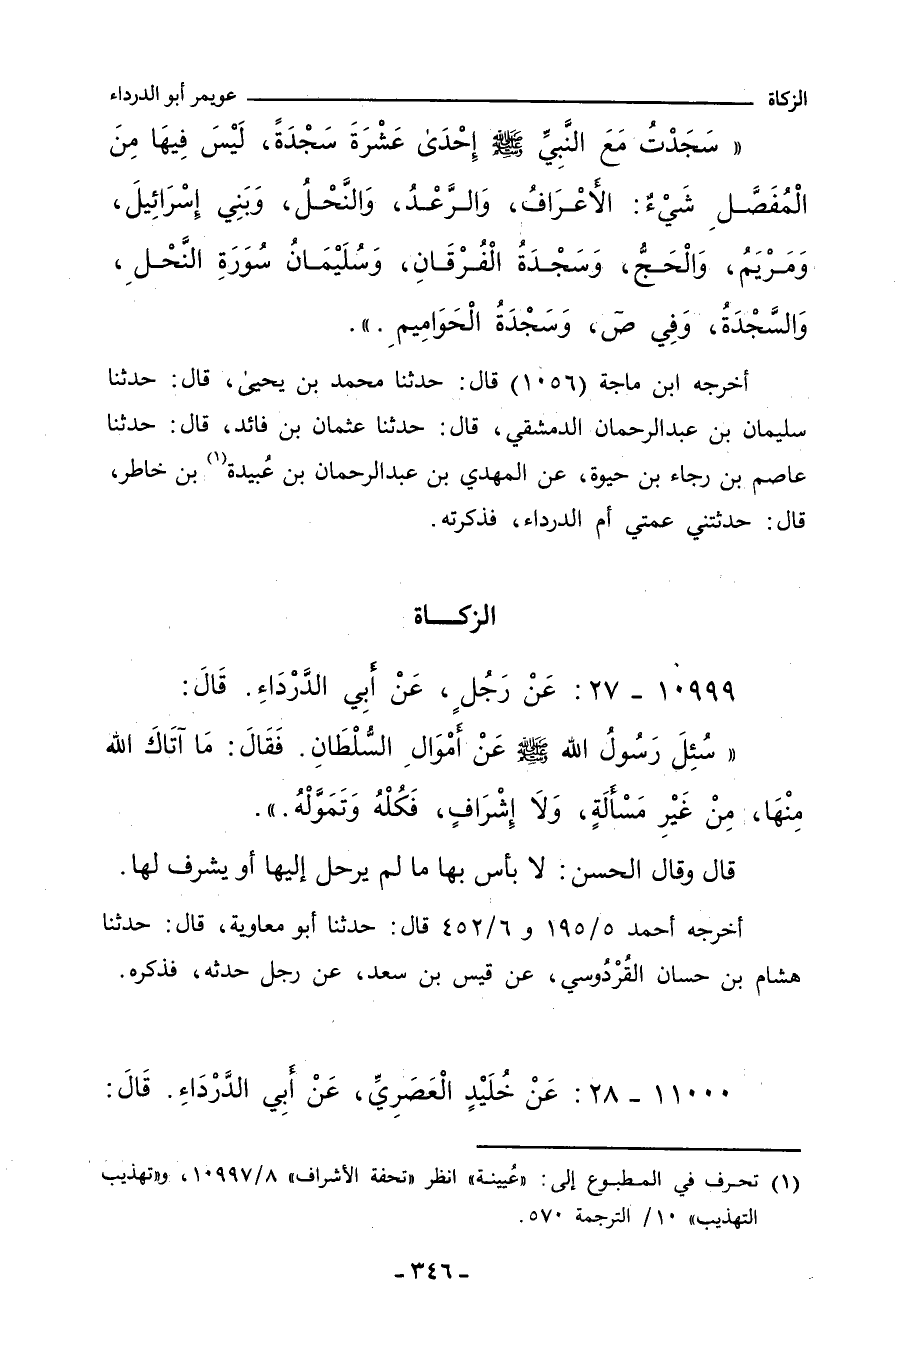 الزكاة ــــــ عويمر أبو الدرداء
« سَجَدْتُ مَعَ النَّبِيِّ ﷺ إِحْدَىٰ عَشْرَةَ سَجْدَةً، لَيْسَ فِيهَا مِنَ
الْمُفَصَّلِ شَيْءٌ: الأَعْرَافُ، وَالرَّعْدُ، وَالنَّحْلُ، وَبَنِي إِسْرَائِيلَ،
وَمَرْيَمُ، وَالْحَجُّ، وَسَجْدَةُ الْفُرْقَانِ، وَسُلَيْمَانُ سُورَةِ النَّحْلِ،
وَالسَّجْدَةُ، وَفِي صَ، وَسَجْدَةُ الْحَوَامِيمِ.».
أخرجه ابن ماجة (١٠٥٦) قال: حدثنا محمد بن يحيىٰ، قال: حدثنا
سليمان بن عبدالرحمان الدمشقي، قال: حدثنا عثمان بن فائد، قال: حدثنا
عاصم بن رجاء بن حيوة، عن المهدي بن عبدالرحمان بن عُبيدة(١) بن خاطر،
قال: حدثتني عمتي أم الدرداء، فذكرته.
الزكـــاة
١٠٩٩٩ - ٢٧: عَنْ رَجُلٍ، عَنْ أَبِي الدَّرْدَاءِ. قَالَ:
« سُئِلَ رَسُولُ الله ﷺ عَنْ أَمْوَالِ السُّلْطَانِ. فَقَالَ: مَا آتَاكَ الله
مِنْهَا، مِنْ غَيْرِ مَسْأَلَةٍ، وَلَا إِشْرَافٍ، فَكُلْهُ وَتَمَوَّلْهُ.».
قال وقال الحسن: لا بأس بها ما لم يرحل إليها أو يشرف لها.
أخرجه أحمد ١٩٥/٥ و ٤٥٢/٦ قال: حدثنا أبو معاوية، قال: حدثنا
هشام بن حسان القُرْدُوسي، عن قيس بن سعد، عن رجل حدثه، فذكره.
١١٠٠٠ - ٢٨: عَنْ خُلَيْدٍ الْعَصَرِيِّ، عَنْ أَبِي الدَّرْدَاءِ. قَالَ:
(١) تحرف في المطبوع إلى: «عُيينة» انظر «تحفة الأشراف» ١٠٩٩٧/٨، و«تهذيب
التهذيب» ١٠/ الترجمة ٥٧٠.
- ٣٤٦ -